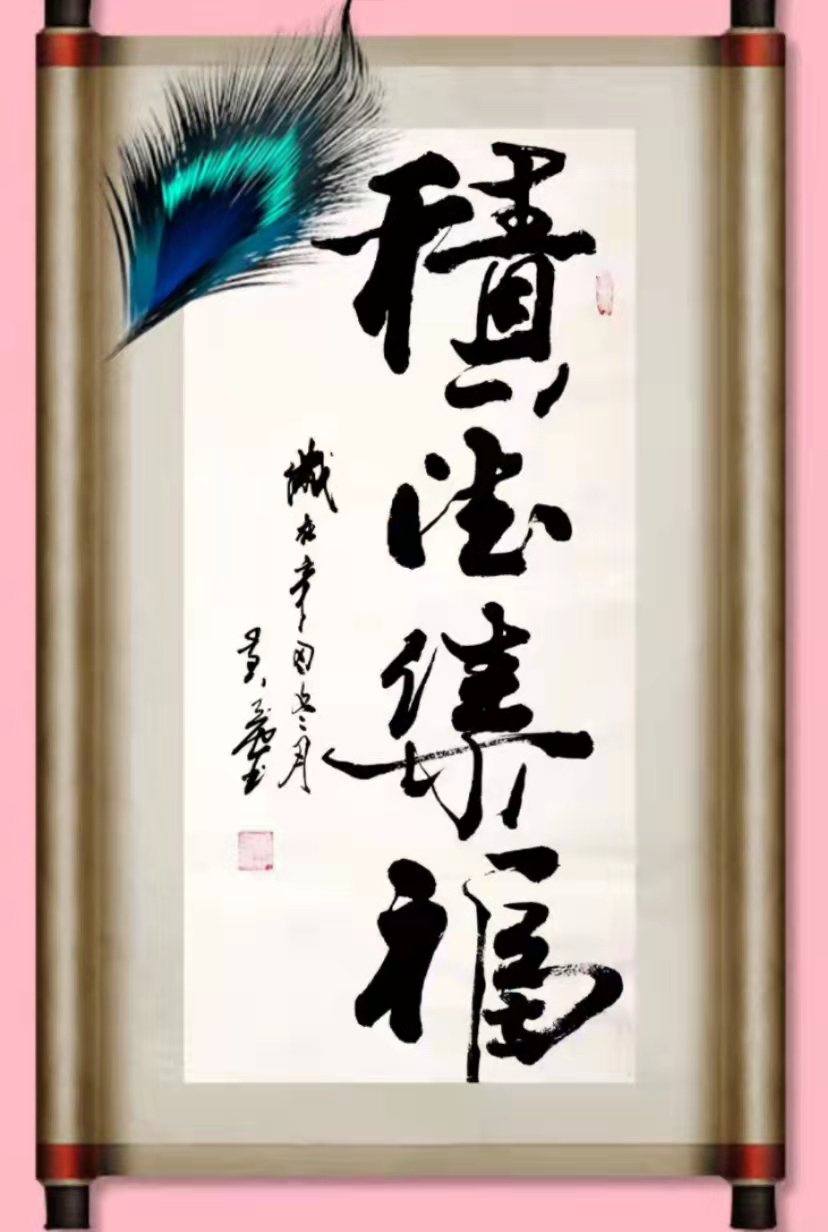 積德集福
歲在辛丑冬月